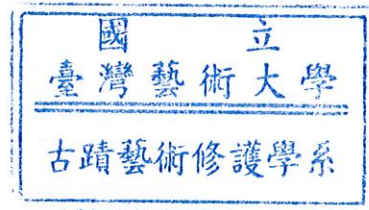 國立
臺灣藝術大學
古蹟藝術修護學系